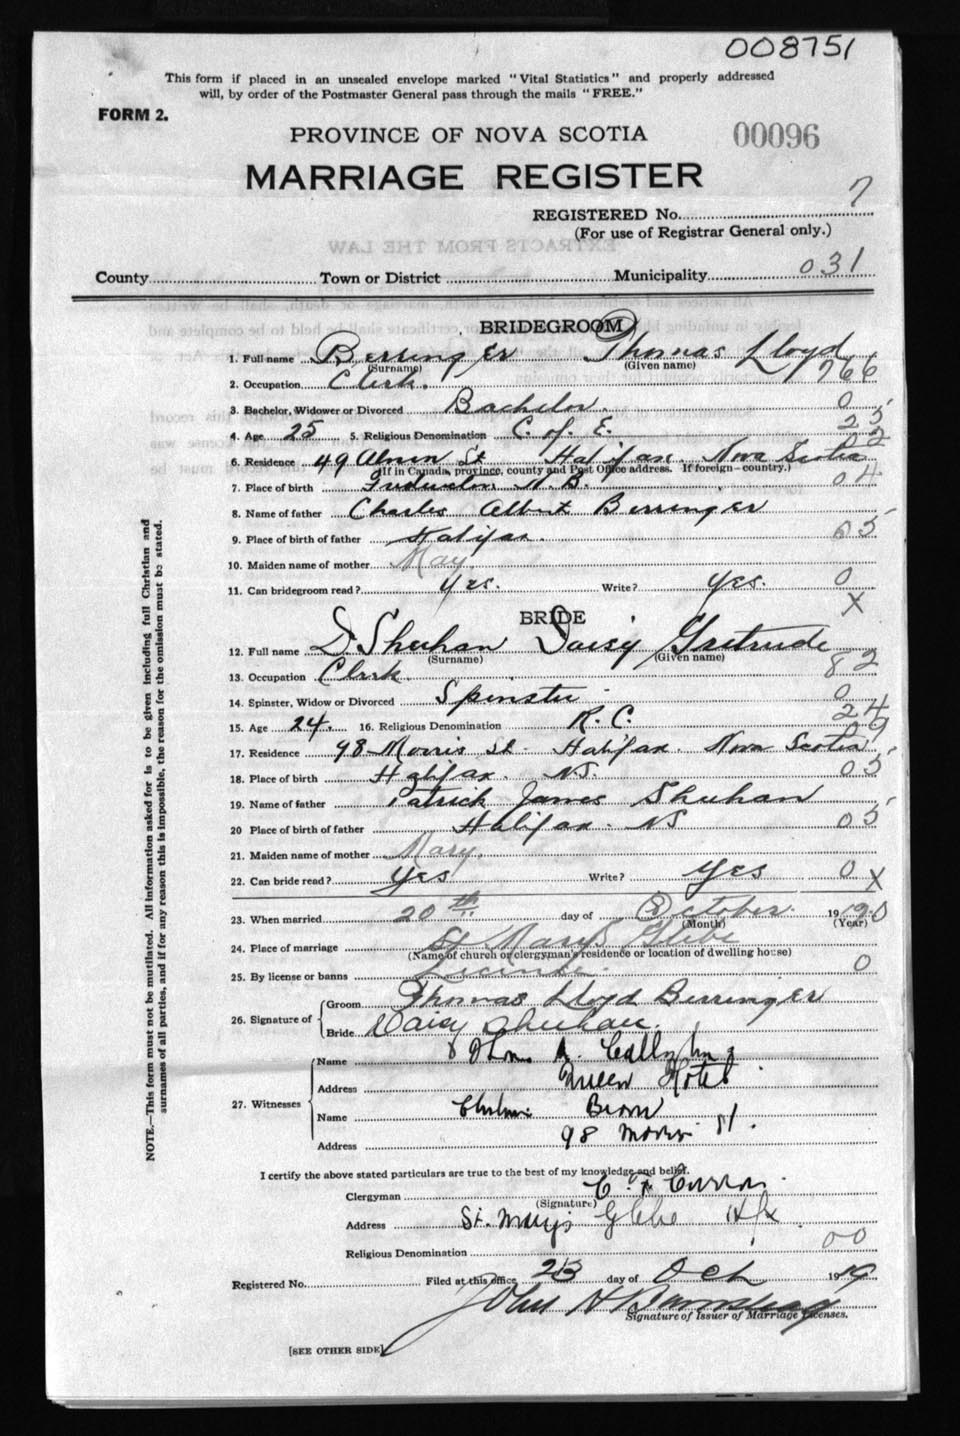 008751
This form if placed in an unsealed envelope marked "Vital Statistics" and properly addressed
will, by order of the Postmaster General pass through the mails "FREE."
FORM 2.
PROVINCE OF NOVA SCOTIA
00096
MARRIAGE REGISTER
REGISTERED No. 7
(For use of Registrar General only.)
EXTRACTS FROM THE LAW
County Town or District Municipality 031
BRIDEGROOM
1. Full name Berringer Thomas Lloyd
(Surname) (Given name)
2. Occupation Clerk. 766
3. Bachelor, Widower or Divorced Bachelor. 0
4. Age 25 5. Religious Denomination C. of E. 25
6. Residence 49 St Halifax. Nova Scotia 22
(If in Canada, province, county and Post Office address. If foreign—country.)
7. Place of birth Fredericton N.B. 04
8. Name of father Charles Albert Berringer
9. Place of birth of father Halifax. 05
10. Maiden name of mother May
11. Can bridegroom read? Yes. Write? Yes. 0
X
BRIDE
12. Full name Sheehan Daisy Gertrude
(Surname) (Given name)
13. Occupation Clerk. 82
14. Spinster, Widow or Divorced Spinster 0
15. Age 24. 16. Religious Denomination R.C. 24
17. Residence 98 Morris St. Halifax. Nova Scotia
18. Place of birth Halifax. N.S. 05
19. Name of father Patrick James Sheehan
20 Place of birth of father Halifax. NS 05
21. Maiden name of mother Mary.
22. Can bride read? Yes Write? Yes 0 X
23. When married 20th day of October. 1919 0
(Month) (Year)
24. Place of marriage St Marys Glebe
(Name of church or clergyman's residence or location of dwelling house)
25. By license or banns License. 0
26. Signature of Groom Thomas Lloyd Berringer
Bride Daisy Sheehan.
27. Witnesses
Name
Address Queen Hotel
Name
Address 98 Morris St.
I certify the above stated particulars are true to the best of my knowledge and belief.
Clergyman C. Curran.
(Signature)
Address St. Mary's Glebe Hfx
Religious Denomination 00
Registered No. Filed at this office 23 day of Oct 1919
John H
Signature of Issuer of Marriage Licenses.
[SEE OTHER SIDE]
NOTE.—This form must not be mutilated. All information asked for is to be given including full Christian and
surnames of all parties, and if for any reason this is impossible, the reason for the omission must be stated.